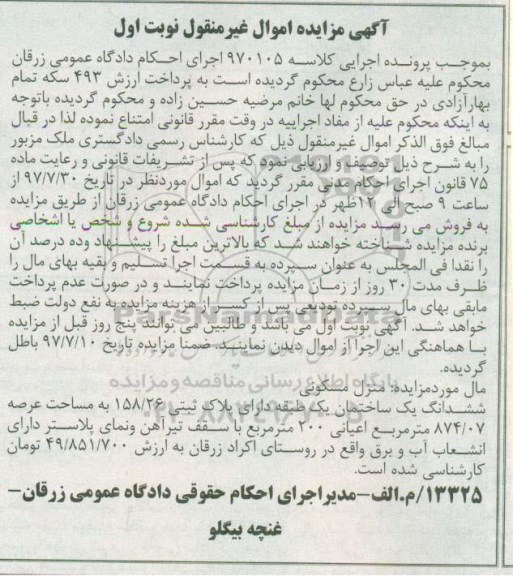 آگهی مزایده اموال غیرمنقول نوبت اول
بموجب پرونده اجرایی کلاسه ۹۷۰۱۰۵ اجرای احکام دادگاه عمومی زرقان
محکوم علیه عباس زارع محکوم گردیده است به پرداخت ارزش ۴۹۳ سکه تمام
بهارآزادی در حق محکوم لها خانم مرضیه حسین زاده و محکوم گردیده باتوجه
به اینکه محکوم علیه از مفاد اجراییه در وقت مقرر قانونی امتناع نموده لذا در قبال
مبالغ فوق الذکر اموال غیرمنقول ذیل که کارشناس رسمی دادگستری ملک مزبور
را به شرح ذیل توصیف و ارزیابی نمود که پس از تشریفات قانونی و رعایت ماده
۷۵ قانون اجرای احکام مدنی مقرر گردید که اموال موردنظر در تاریخ ۹۷/۷/۳۰ از
ساعت ۹ صبح الی ۱۲ظهر در اجرای احکام دادگاه عمومی زرقان از طریق مزایده
به فروش می رسد مزایده از مبلغ کارشناسی شده شروع و شخص یا اشخاصی
برنده مزایده شناخته خواهند شد که بالاترین مبلغ را پیشنهاد وده درصد آن
را نقدا فی المجلس به عنوان سپرده به قسمت اجرا تسلیم و بقیه بهای مال را
ظرف مدت ۳۰ روز از زمان مزایده پرداخت نمایند و در صورت عدم پرداخت
مابقی بهای مال سپرده تودیعی پس از کسر از هزینه مزایده به نفع دولت ضبط
خواهد شد. آگهی نوبت اول می باشد و طالبین می توانند پنج روز قبل از مزایده
با هماهنگی این اجرا از اموال دیدن نمایند. ضمنا مزایده تاریخ ۹۷/۷/۱۰ باطل
گردیده.
مال موردمزایده: منزل مسکونی
ششدانگ یک ساختمان یک طبقه دارای پلاک ثبتی ۱۵۸/۲۶ به مساحت عرصه
۸۷۴/۰۷ مترمربع اعیانی ۲۰۰ مترمربع با سقف تیرآهن ونمای پلاستر دارای
انشعاب آب و برق واقع در روستای اکراد زرقان به ارزش ۴۹/۸۵۱/۷۰۰ تومان
کارشناسی شده است.
۱۳۳۲۵/م.الف-مدیراجرای احکام حقوقی دادگاه عمومی زرقان-
غنچه بیگلو
ParsNamadData
پایگاه اطلاع رسانی مناقصه و مزایده